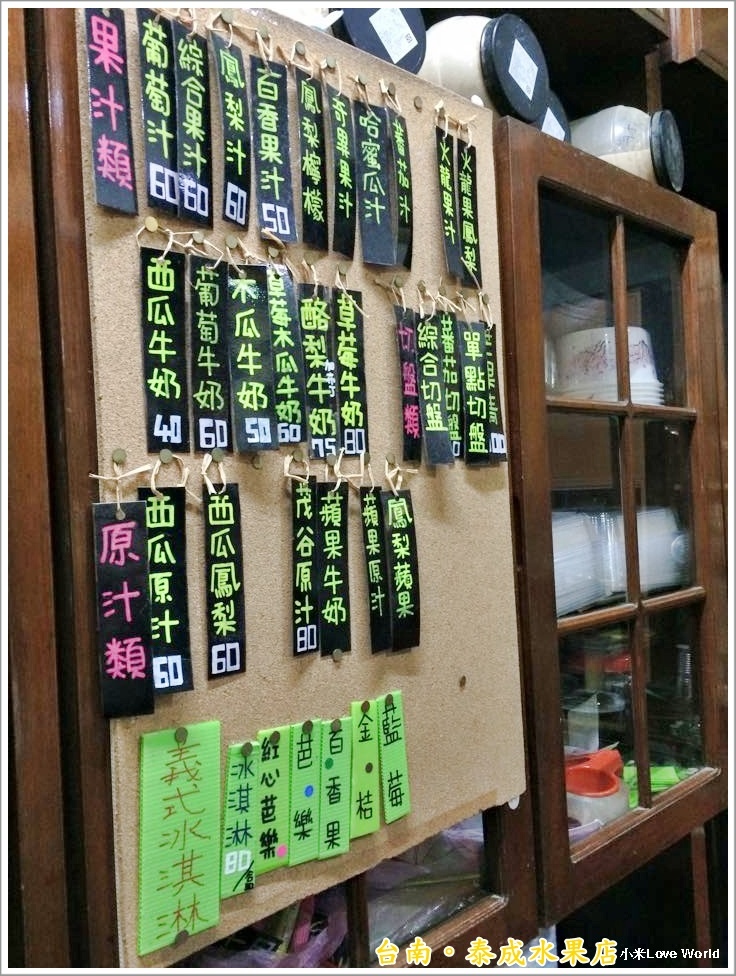 果汁類
葡萄汁 60
綜合果汁 60
鳳梨汁 60
百香果汁 50
鳳梨檸檬
奇異果汁
哈蜜瓜汁
蕃茄汁
火龍果汁
火龍果鳳梨
西瓜牛奶 40
葡萄牛奶 60
木瓜牛奶 50
草莓木瓜牛奶 60
酪梨牛奶 加布丁 75
草莓牛奶 80
切盤類
綜合切盤
蕃茄切盤
單點切盤
原汁類
西瓜原汁 60
西瓜鳳梨 60
茂谷原汁 80
蘋果牛奶
蘋果原汁
鳳梨蘋果
義式冰淇淋
冰淇淋 80/
紅心芭樂
芭樂
百香果
金桔
藍莓
台南。泰成水果店 小米Love World